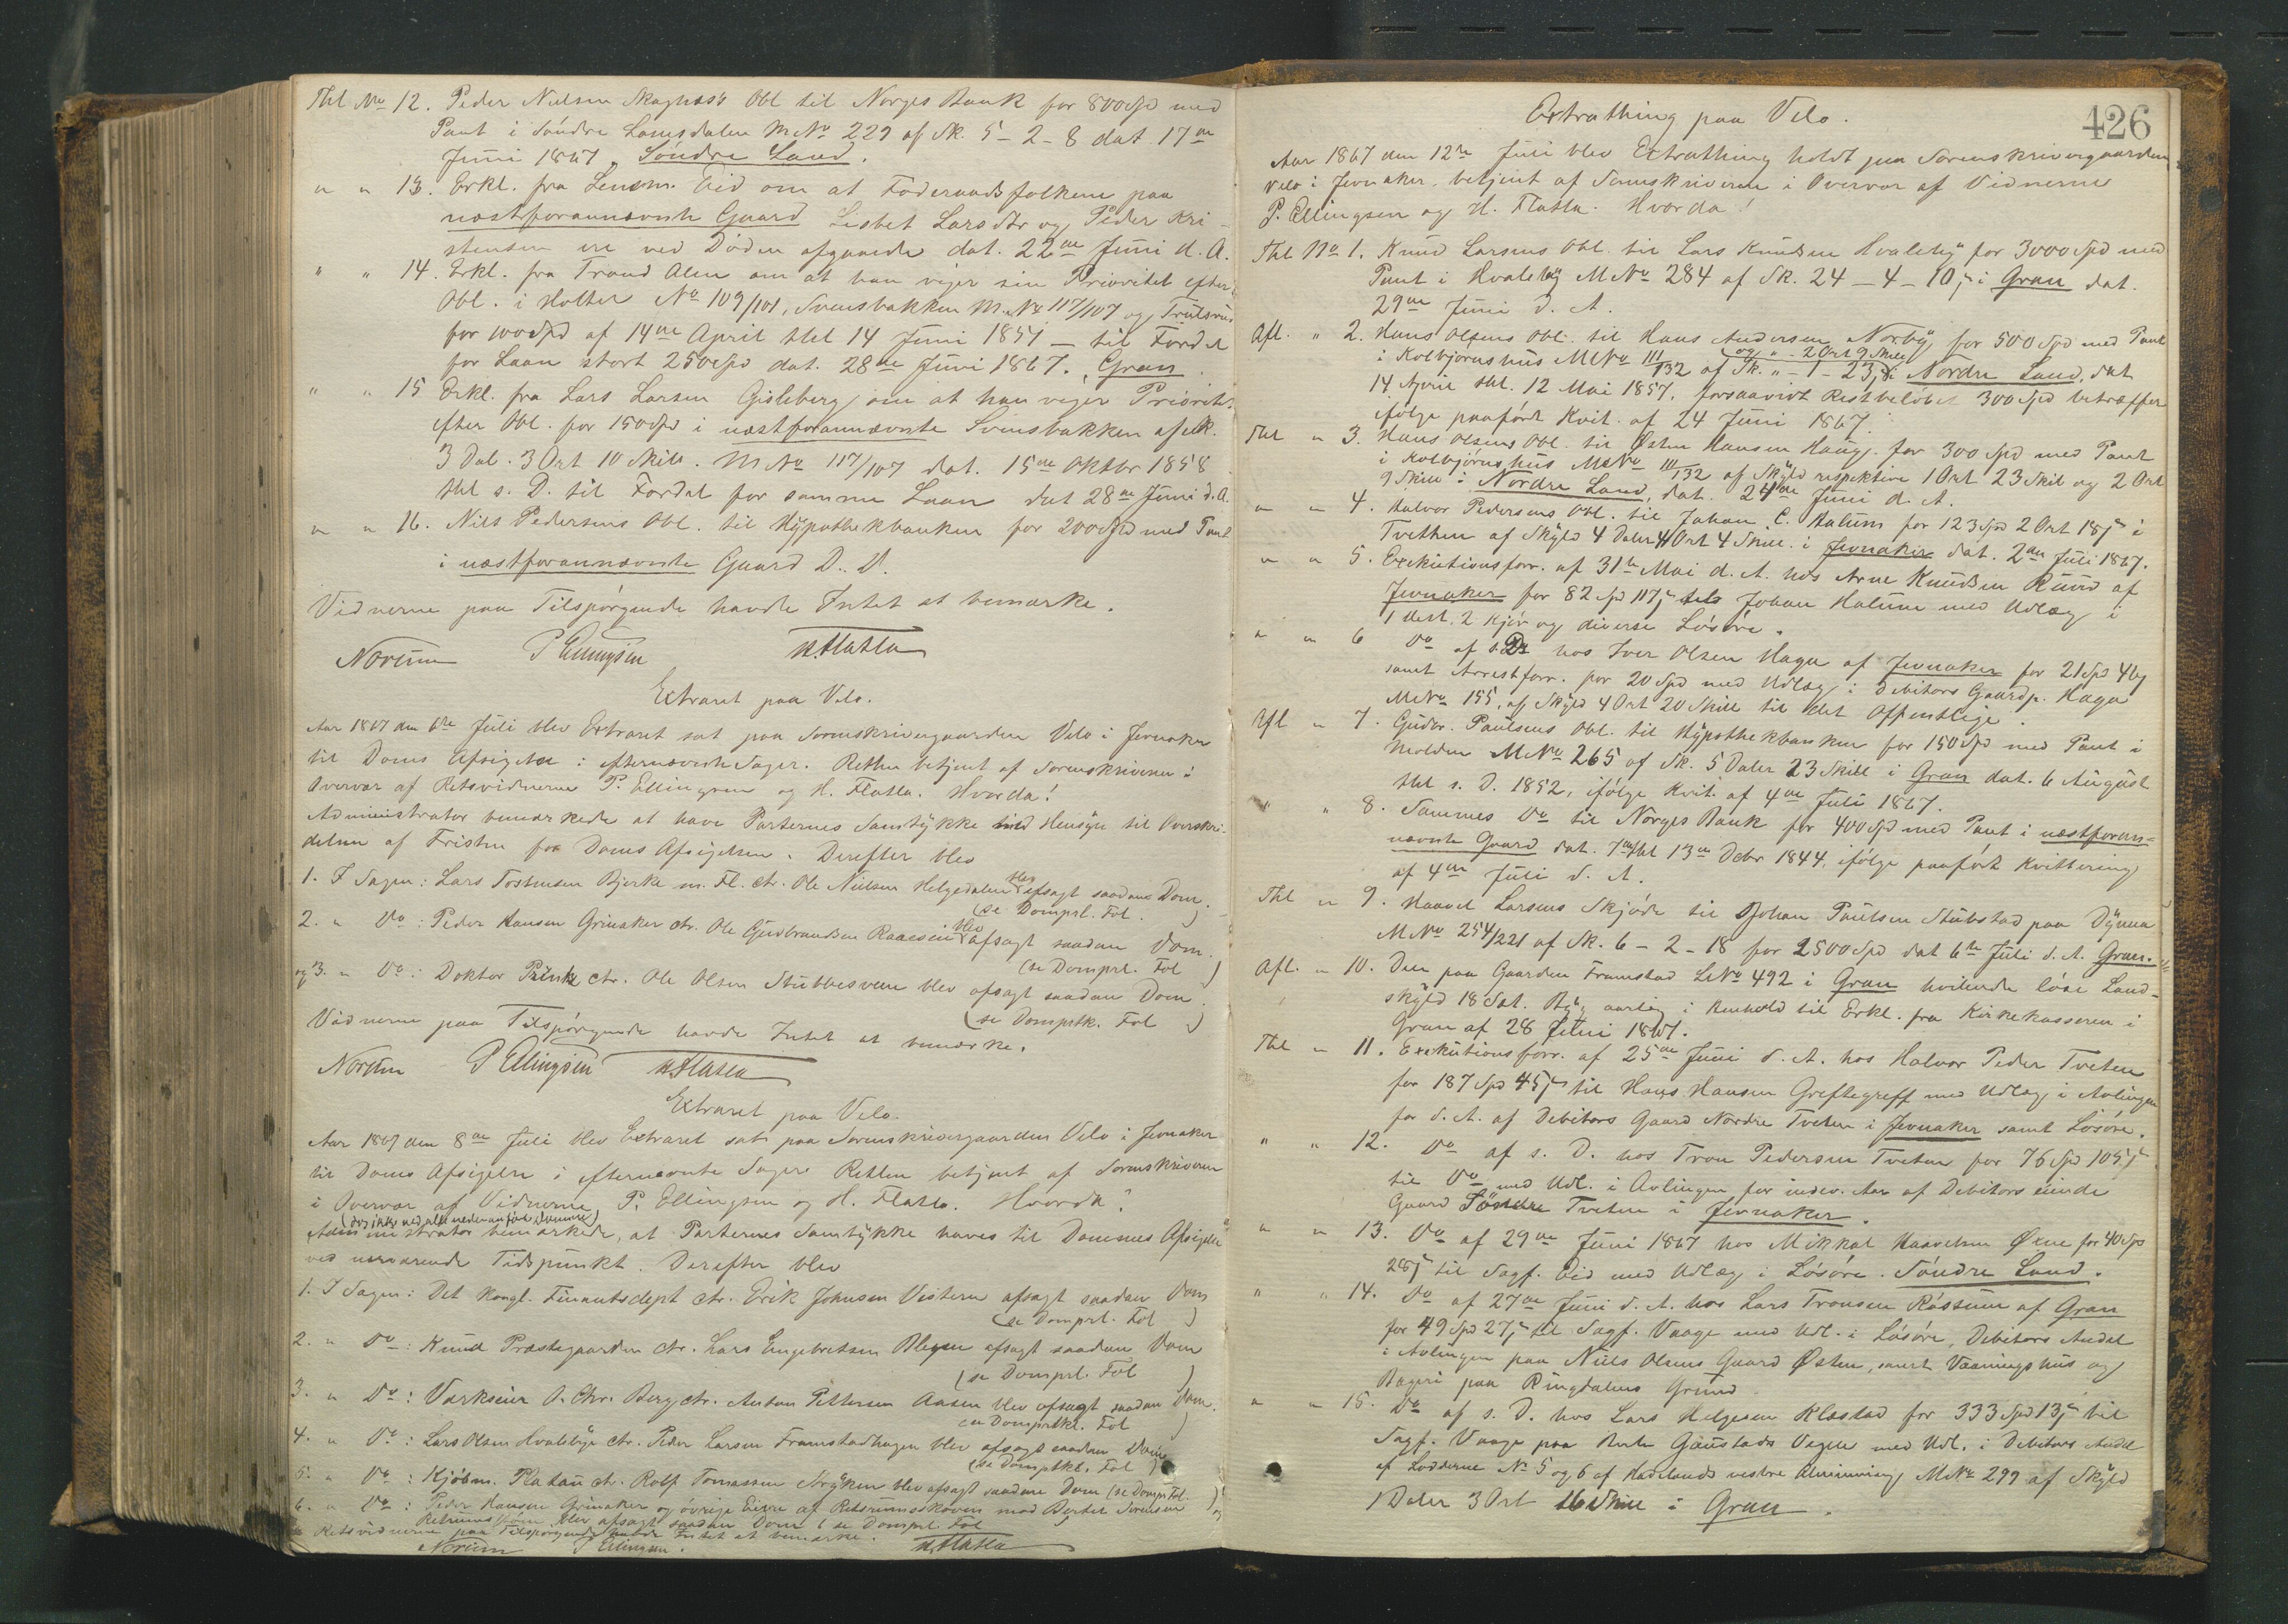 Thl No 12. Peder Nielsen Skagnæs's Obl til Norges Bank for 800 Spd med
Pant i Söndre Lomsdalen MNo 229 af Sk. 5-2-8 dat 17de
Juni 1867. Söndre Land.
" " 13. Erkl. fra Lensm. Eid om at Föderaadsfolkene paa
næstforannævnte Gaard Lisbet Larsdtr og Peder Kri-
stensen ere ved Döden afgaaede dat. 22de Juni d. A.
" " 14. Erkl. fra Trond Alm om at han viger sin Prioritet efter
Obl. i Holter No 109/101, Svensbakken M.No 117/107 og
for 100 Spd af 14de April thl 14 Juni 1851 - til Fordel
for Laan stort 250 Spd dat. 28de Juni 1867. Gran.
" " 15 Erkl. fra Lars Larsen Gisleberg om at han viger Priorit.
efter Obl. for 150 Spd i næstforannævnte Svensbakken af Sk.
3 Dal. 3 Ort 10 Skill. M No 117/107 dat. 15de Oktbr 1858
thl s. D. til Fordel for samme Laan dat 28de Juni d. A.
" " 16. Nils Pedersens Obl. til Hypothekbanken for 200 Spd med Pant
i næstforannævnte Gaard D. D.
Vidnerne paa Tilspörgende havde Intet at bemærke.
Norum P Ellingsen H. Flatla
Extraret paa Velo.
Aar 1867 den 6te Juli blev Extraret sat paa Sorenskrivergaarden Velo i Jevnaker
til Doms Afsigelse i efternævnte Sager. Retten betjent af Sorenskriveren i
Overvær af Retsvidnerne P. Ellingsen og H. Flatla. Hvorda!
Administrator bemærkede at have Parternes Samtykke med Hensyn til Overskri-
delsen af Fristen for Doms Afsigelsen. Derefter blev
1. I Sagen: Lars Torstensen Bjerke m. Fl. ctr. Ole Nielsen Helgedalen blev afsagt saadan Dom.
(se Domprt. Fol. )
2. " Do: Peder Hansen Grinaker ctr. Ole Gudbrandsen Raaesein blev afsagt saadan Dom.
(se Domprt. Fol )
og 3. " Do: Doktor Printz ctr. Ole Olsen Stubbesveen blev afsagt saadan Dom.
(se Domprtk. Fol )
Vidnerne paa Tilspörgende havde Intet at bemærke.
Norum P Ellingsen H. Flatla
Extraret paa Velo.
Aar 1867 den 8de Juli blev Extraret sat paa Sorenskrivergaarden Velo i Jevnaker
til Doms Afsigelse i efternævnte Sager. Retten betjent af Sorenskriveren
i Overvær af Vidnerne P. Ellingsen og H. Flatla. Hvorda!
(dog ikke ved alle nedenanförte Domme)
Administrator bemærkede, at Parternes Samtykke haves til Dommes Afsigelse
ved nærværende Tidspunkt. Derefter blev
1. I Sagen: Det kongl. Finantsdept ctr. Erik Johnsen Vestern afsagt saadan Dom
(se Domprt. Fol )
2. " Do: Knud Præstegaarden ctr. Lars Engebretsen Blegen afsagt saadan Dom
(se Domprt. Fol )
3. " Do: Værkseier O. Chr. Berg ctr. Anton Pettersen Aasen blev afsagt saadan Dom.
(se Domprtkl. Fol )
4. " Do: Lars Olsen Hvalebye ctr. Peder Larsen Framstadhagen blev afsagt saadan Dom
(se Domprtkl. Fol )
5. " Do: Kjöbm. Platau ctr. Rolf Tomassen Stryken blev afsagt saadan Dom (se Domprt Fol. )
6. " Do: Peder Hansen Grinaker og övrige Eiere af Retrumsskoven mod Berter Sorensen
Retrumsskoven blev afsagt saadan Dom (se Domprt. Fol )
Retsvidnerne paa Tilspörgende havde Intet at bemærke.
Norum P Ellingsen. H. Flatla
426
Extrathing paa Velo.
Aar 1867 den 12te Juli blev Extrathing holdt paa Sorenskrivergaarden
Velo i Jevnaker, betjent af Sorenskriveren i Overvær af Vidnerne
P. Ellingsen og H. Flatla. Hvorda!
Thl No 1. Knud Larsens Obl. til Lars Knudsen Hvaleby for 3000 Spd med
Pant i Hvaleby MNo 284 af Sk. 24-4-10 ß i Gran dat.
29de Juni d. A.
Afl. " 2. Hans Olsens Obl. til Hans Andersen Norby for 500 Spd med Pant
og " - 2 Ort 9 Skill
i Kolbjörnshus MNo 111/132 af Sk. " - 1 - 23 ß i Nordre Land, dat
14 April thl. 12 Mai 1857, forsaavidt Restbelöbet 300 Spd betræffer
ifölge paaförte Kvit. af 24 Juni 1867.
Thl " 3. Hans Olsens Obl. til Östen Hansen Haug. for 300 Spd med Pant
i Kolbjörnshus MNo 111/132 af Skyld respektive 1 Ort 23 Skil og 2 Ort
9 Skill i Nordre Land, dat. 24de Juni d. A.
" " 4. Halvor Pedersens Obl. til Johan C. Halum for 123 Spd 2 Ort 18 ß i
Tvethen af Skyld 4 Daler 4 Ort 4 Skill. i Jevnaker dat. 2den Juli 1867.
" " 5. Exekutionsforr. af 31te Mai d. A. hos Arne Knudsen Ruud af
Jevnaker for 82 Spd 117 ß til Johan Halum med Udlæg i
1 Hest, 2 Kjör og diverse Lösöre.
" " 6 Do af s. D. hos Iver Olsen Haga af Jevnaker for 21 Spd 46 ß
samt Arrestforr. for 20 Spd med Udlæg i Debitors Gaardp. Haga
MNo 155, af Skyld 4 Ort 20 Skill til det Offentlige.
Afl " 7. Gudbr. Paulsens Obl. til Hypothekbanken for 150 Spd med Pant i
Molden MNo 265 af Sk. 5 Daler 23 Skill i Gran dat. 6 August
thl s. D. 1852, ifölge Kvit. af 4de Juli 1867.
" " 8. Sammes Do til Norges Bank for 400 Spd med Pant i næstforan-
nævnte Gaard dat. 7de thl 13de Debr 1844, ifölge paafört Kvittering
af 4de Juli d. A.
Thl " 9. Haavel Larsens Skjöde til Johan Paulsen Stubstad paa Dynna
MNo 254/221 af Sk. 6-2-18 for 2500 Spd dat 6te Juli d. A. Gran.
Afl. " 10. Den paa Gaarden Framstad LNo 492 i Gran hvilende löse Land-
skyld 18 Sæt. Byg aarlig i Henhold til Erkl. fra Kirkekasseren i
Gran af 28 Juni 1867.
Thl " 11. Exekutionsforr. af 25de Juni d. A. hos Halvor Peder Tveten
for 187 Spd 45 ß til Hans Hansen Greftegreff med Udlæg i Avlingen
for d. A. af Debitors Gaard Nordre Tveten i Jevnaker samt Lösöre.
" " 12. Do af s. D. hos Tron Pedersen Tveten for 76 Spd 105 ß
til Do med Udl. i Avlingen for indev. Aar af Debitors eiende
Gaard Söndre Tveten i Jevnaker.
" " 13. Do af 29de Juni 1867 hos Mikkal Haavelsen Öxne for 40 Spd
28 ß til Sagf. Eid med Udlæg i Lösöre. Söndre Land.
" " 14. Do af 27de Juni d. A. hos Lars Tronsen Rössum af Gran
for 49 Spd 27 ß til Sagf. Vaage med Udl. i Lösöre, Debitors Andel
i Avlingen paa Niels Olsens Gaard Östen, samt Vaaningshus og
Bageri paa Ringdalens Grund.
" " 15. Do af s. D. hos Lars Helgesen Klæstad for 333 Spd 13 ß til
Sagf. Vaage paa Gaustads Vegne med Udl. i Debitors Andel
af Lodderne No 5 og 6 af Hadelands vestre Alminning MNo 299 af Skyld
1 Daler 3 Ort 16 Skill i Gran.